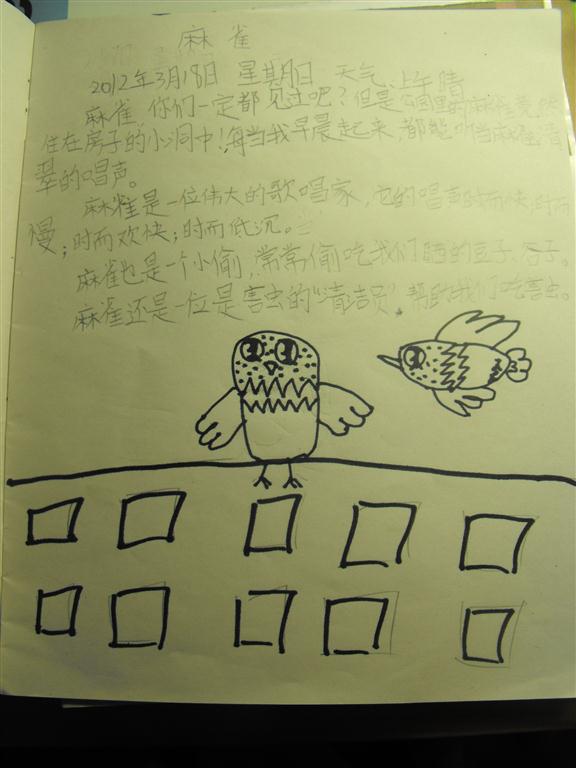 麻雀
2012年3月18日 星期日 天气:上午晴
麻雀,你们一定都见过吧?但是公园里的麻雀
住在房子的小洞中!每当我早晨起来,都能听当麻雀清
翠的唱声。
麻雀是一位伟大的歌唱家,它的唱声时而快,时而
慢;时而欢快;时而低沉。
麻雀也是一个小偷,常常偷吃我们晒的豆子、谷子。
麻雀还是一位是害虫的“清洁员”,帮助我们吃害虫。